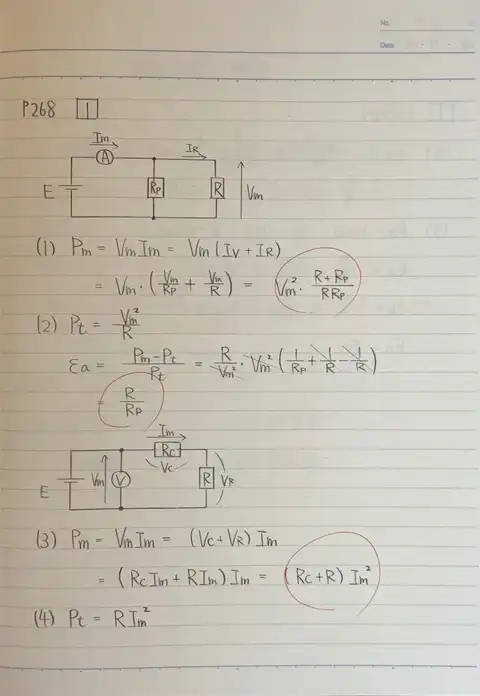 No.
Date
P268 1
Im
IR
A
E
RP
R
Vm
(1) Pm = VmIm = Vm(IV + IR)
= Vm・(Vm/RP + Vm/R) = Vm²・(R+RP)/(RRP)
(2) Pt = Vm²/R
εa = (Pm-Pt)/Pt = R/Vm²・Vm²(1/RP + 1/R - 1/R)
= R/RP
Im
RC
VC
E
Vm
V
R
VR
(3) Pm = VmIm = (VC+VR)Im
= (RCIm + RIm)Im = (RC+R)Im²
(4) Pt = RIm²